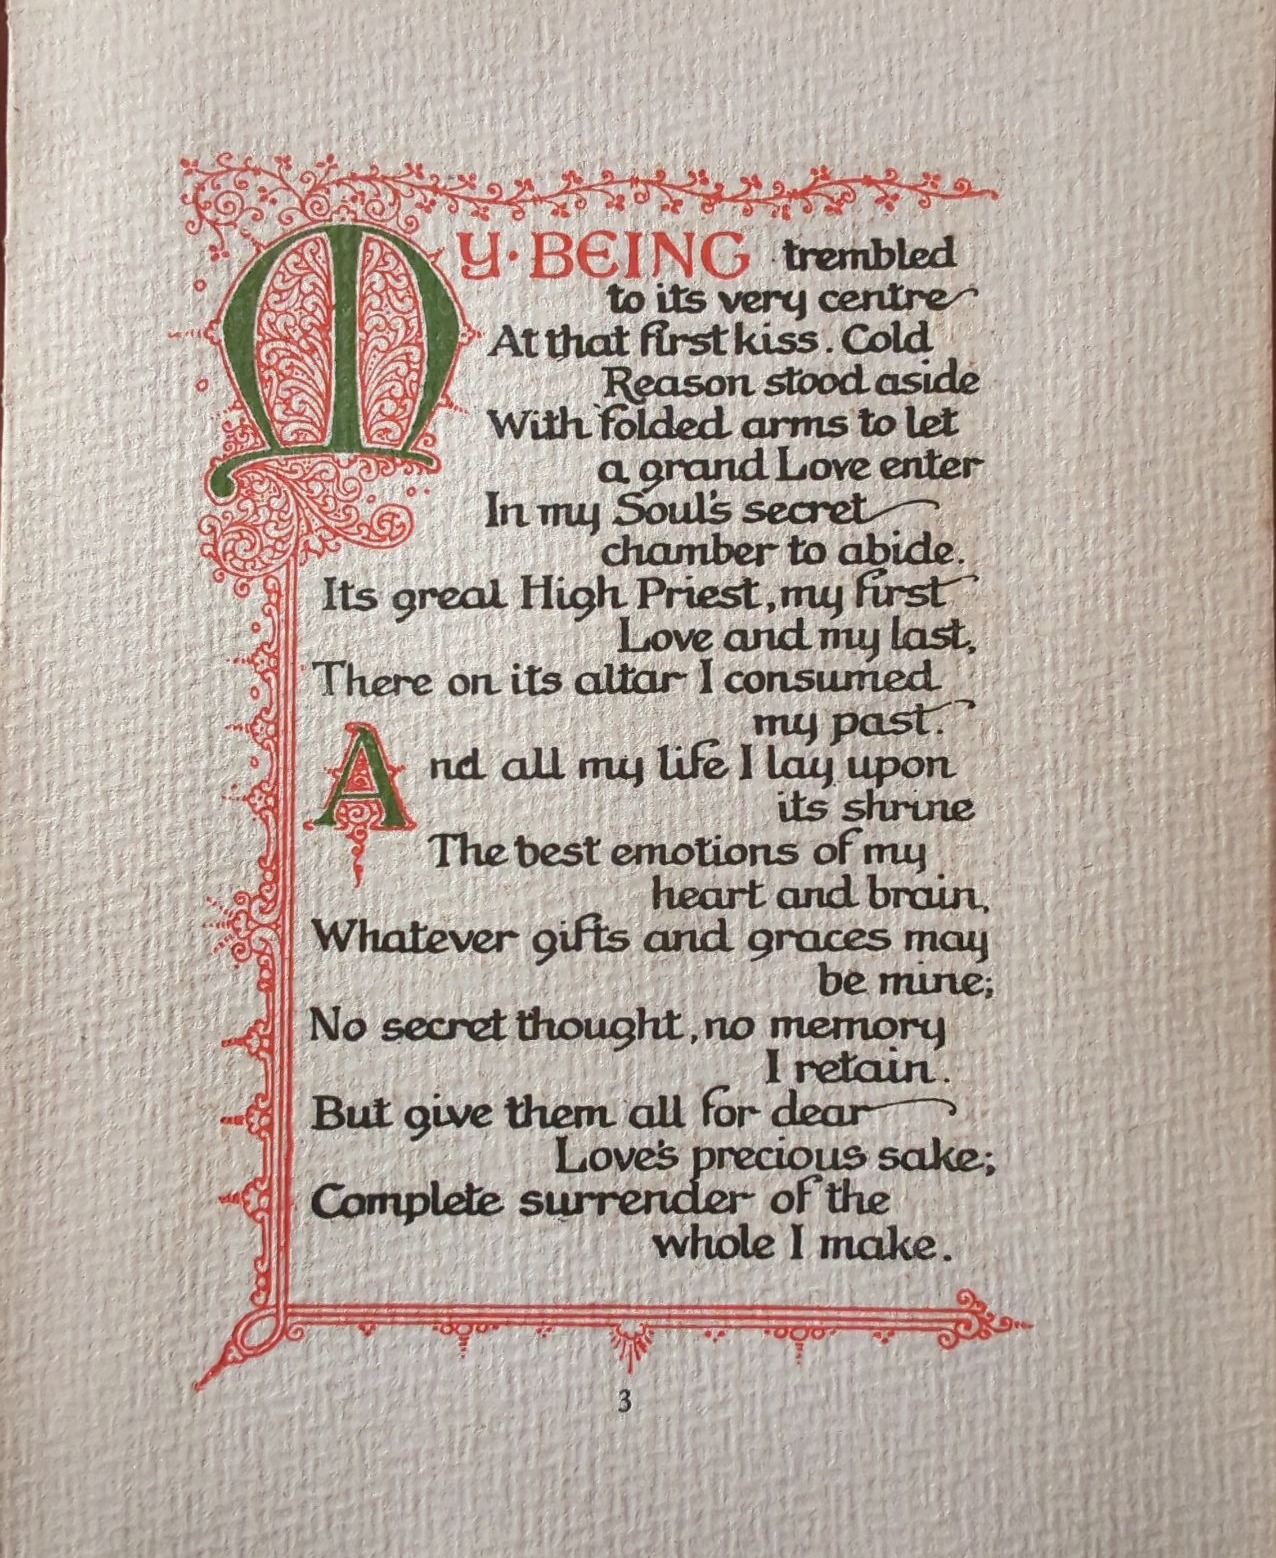 MY·BEING trembled
to its very centre
At that first kiss. Cold
Reason stood aside
With folded arms to let
a grand Love enter
In my Soul's secret
chamber to abide.
Its great High Priest, my first
Love and my last,
There on its altar I consumed
my past.
And all my life I lay upon
its shrine
The best emotions of my
heart and brain,
Whatever gifts and graces may
be mine;
No secret thought, no memory
I retain.
But give them all for dear
Love's precious sake;
Complete surrender of the
whole I make.
3